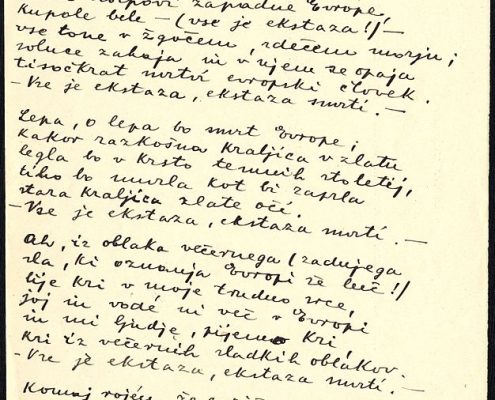 stolpovi zapadne Evrope,
kupole bele – (vse je ekstaza!) –
vse tone v žgočem, rdečem morju;
solnce zahaja in v njem se opaja
tisočkrat mrtvi evropski človek.
– Vse je ekstaza, ekstaza smrti. –
Lepa, o lepa bo smrt Evrope;
kakor razkošna kraljica v zlatu
legla bo v krsto temnih stoletij,
tiho bo umrla kot bi zaprla
stara kraljica zlate oči.
– Vse je ekstaza, ekstaza smrti. –
Ah, iz oblaka večernega (zadnjega
sla, ki oznanja Evropi še luč!)
lije kri v moje trudno srce,
joj in vode ni več v Evropi
in mi ljudje pijemo kri
kri iz večernih sladkih oblakov.
– Vse je ekstaza, ekstaza smrti. –
Komaj rojen, že